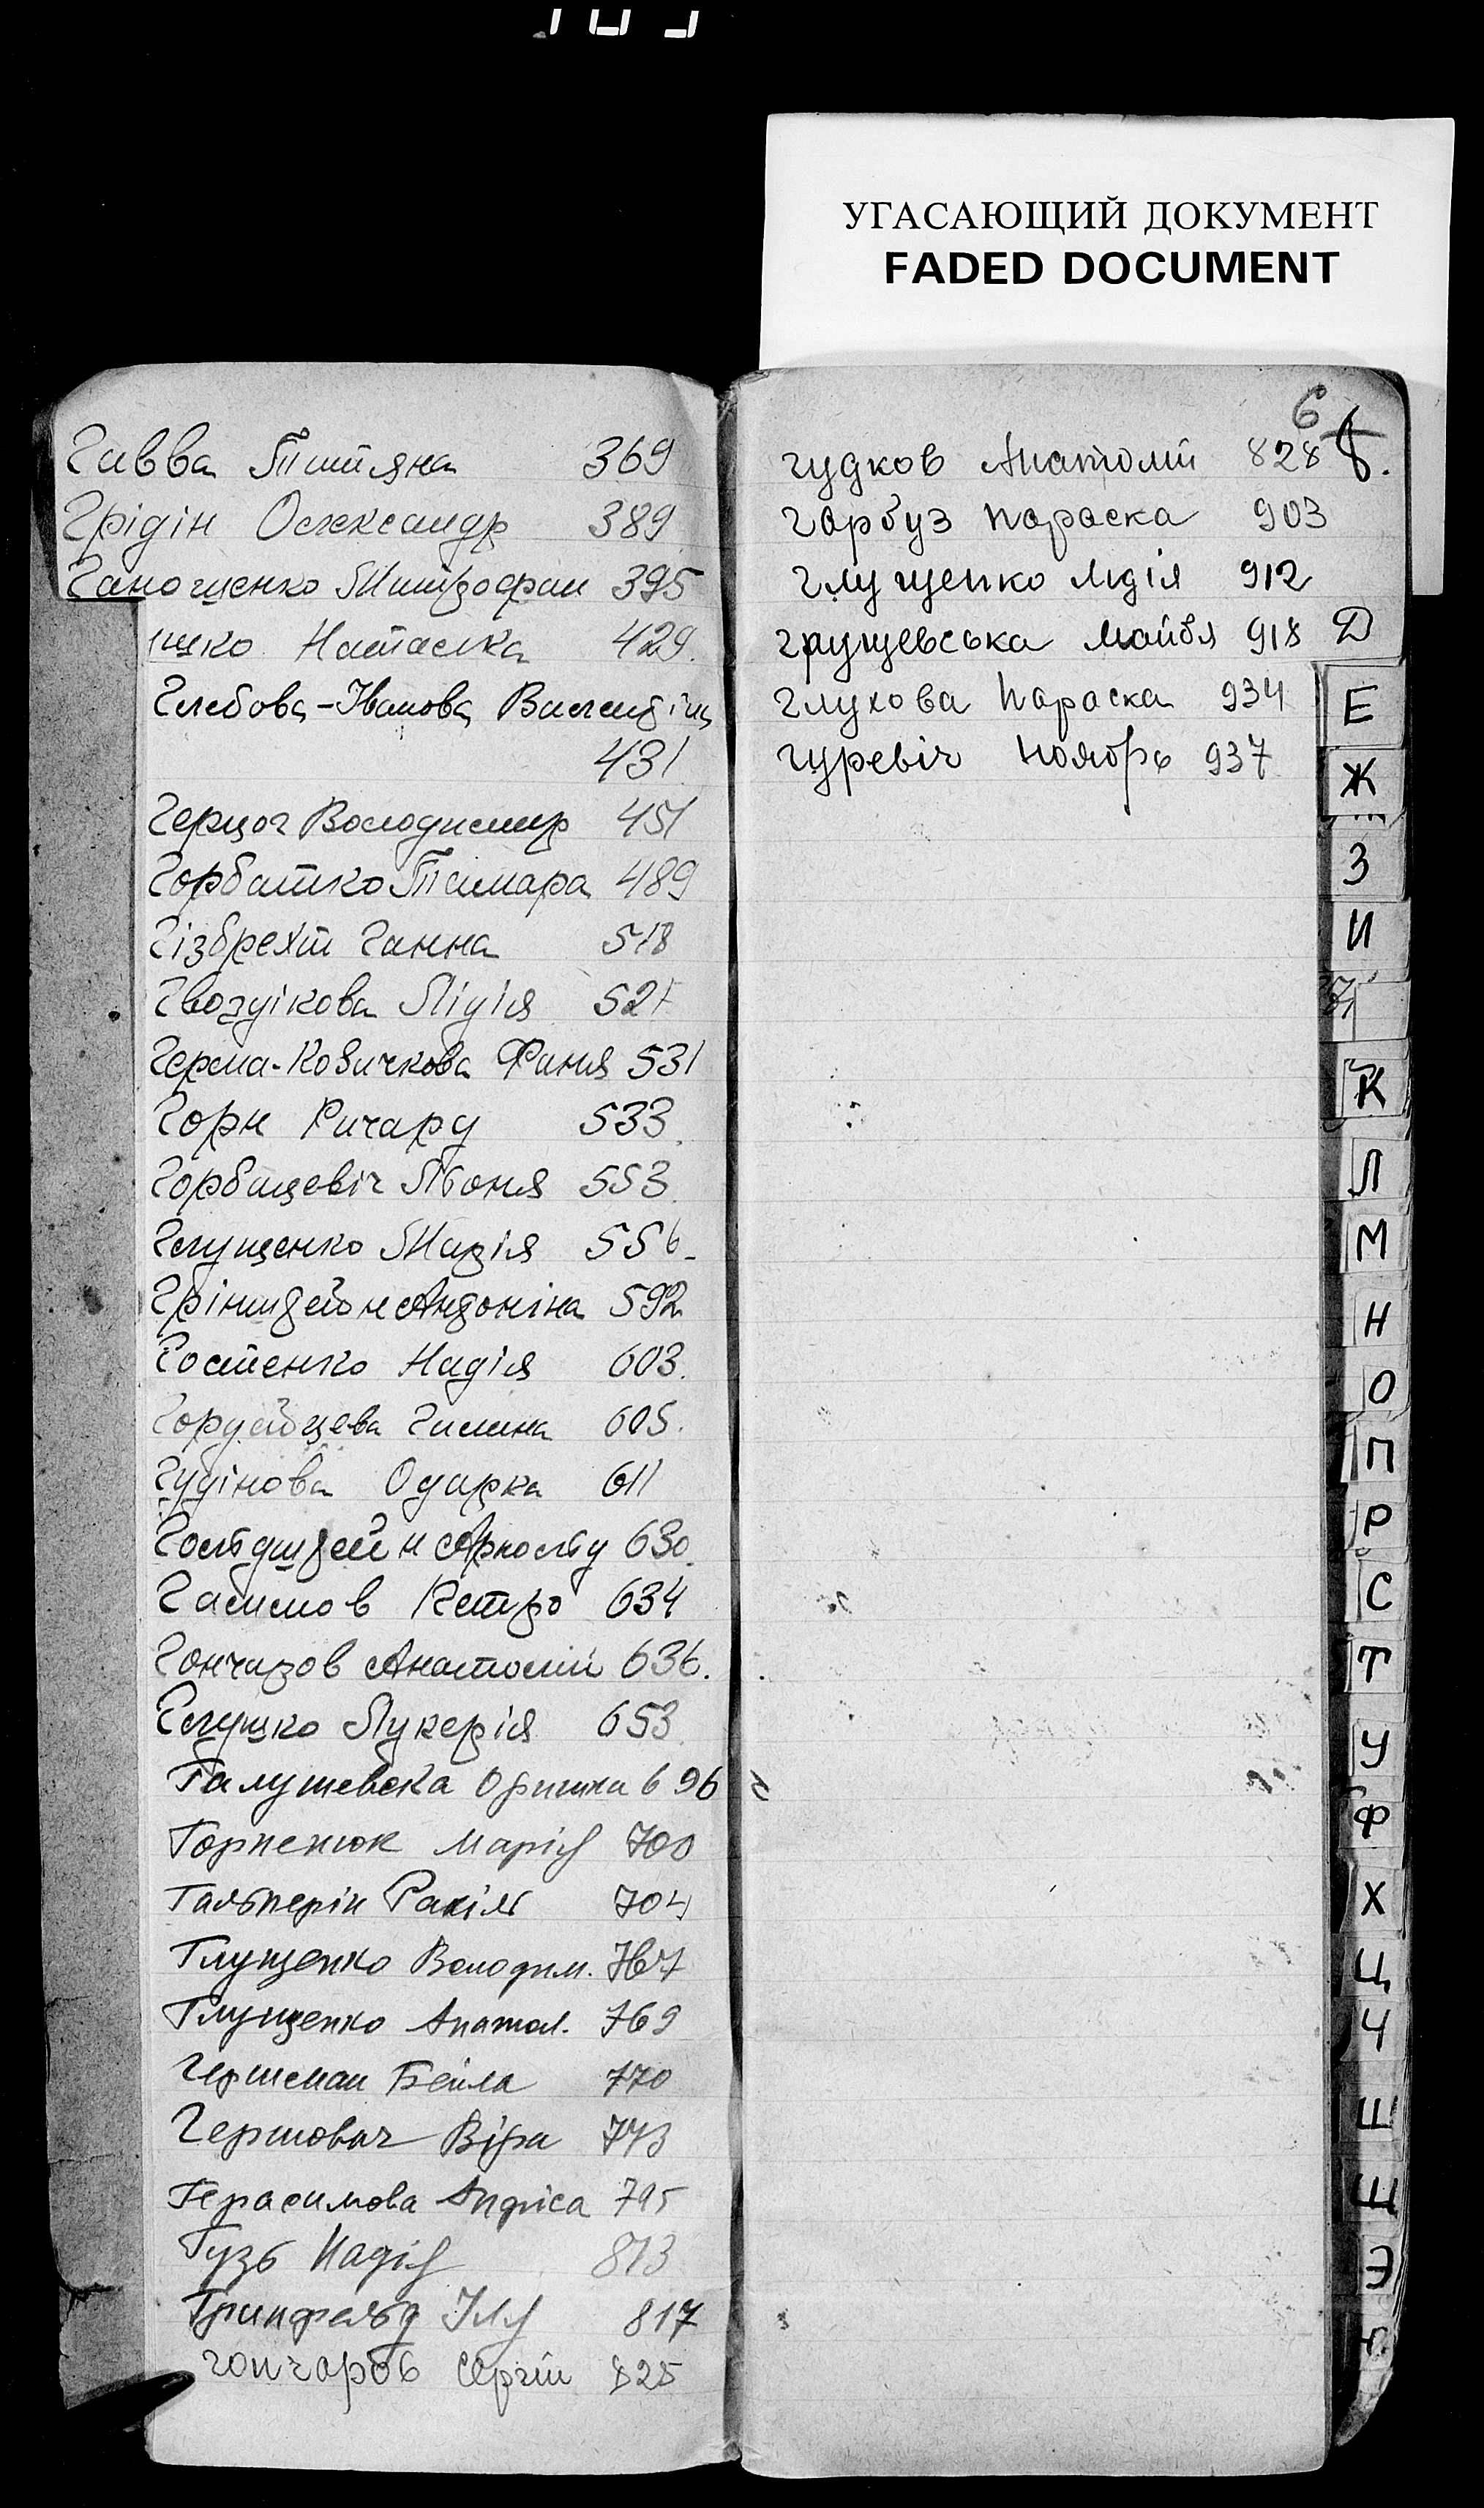 УГАСАЮЩИЙ ДОКУМЕНТ
FADED DOCUMENT
Гавва Тетяна 369
Грідін Олександр 389
Ганощенко Митрофан 395
шко Наталка 429
Глебова-Іванова Валендіна
431
Герцог Володимир 451
Горбатко Тамара 489
Гізбрехт Ганна 518
Гвоздікова Лідія 521
Керма-Ковичкова Фаня 531
Горн Ричард 533
Горбацевіч Льоня 553
Глущенко Марія 556
Грінштейн Антоніна 592
Костенко Надія 603
Гордейцева Галина 605.
Гудінова Одарка 611
Гольдштейн Арнольд 630
Галимов Петро 634
Гончаров Анатолій 636.
Глушко Лукерія 653
Галушевска Оришка 696
Горпенюк Марія 700
Гальперін Рахіль 704
Глущенко Володим. 767
Глущенко Анатол. 769
Гершман Бейла 770
Гершович Віра 773
Герасимова Андріса 795
Гузь Надія 813
Гринфельд Ілля 817
Гончаров Сергій 825
6
гудков Анатолій 828
Гарбуз Параска 903
Глущенко Лідія 912
Грущевська Майбл 918
Глухова Параска 934
Гуревіч Ноябрь 937
Д
Е
Ж
З
И
К
Л
М
Н
О
П
Р
С
Т
У
Ф
Х
Ц
Ч
Ш
Щ
Э